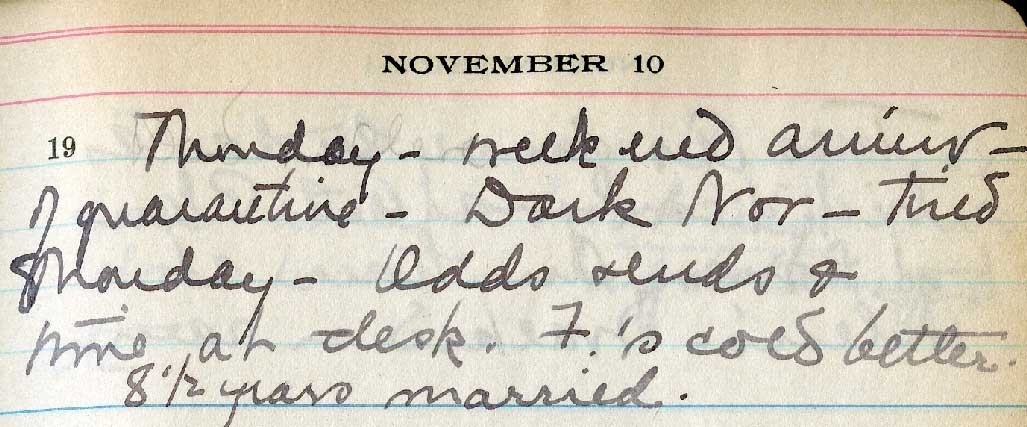 NOVEMBER 10
19 Monday - week end
of quarantine - Dark Nov - Tired
Monday - Odds & ends &
time at desk. F.'s cold better.
8 1/2 years married.